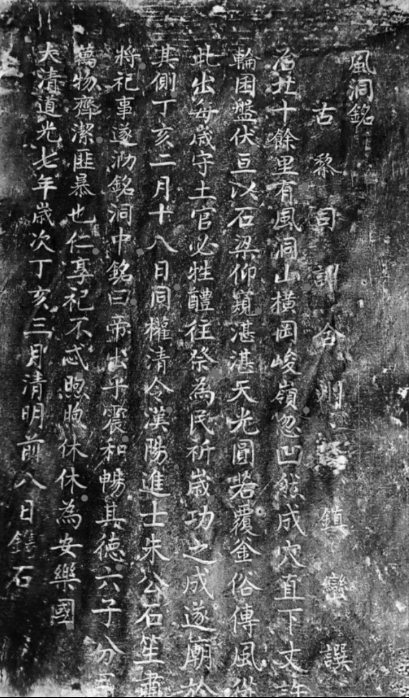 風洞銘
古黎司訓合州鎮巒譔
治北十餘里有風洞山橫岡峻嶺忽凹然成穴直下丈許
輪囷盤伏亘以石梁仰窺湛湛天光圓若覆釜俗傳風從
此出每歲守土官必牲醴往祭為民祈歲功之成遂廟於
其側丁亥二月十八日同權清令漢陽進士朱公石笙肅
將祀事遂泐銘洞中銘曰帝出乎震和暢其德六子分
萬物齊潔匪暴也仁享祀不忒煦煦休休為安樂國
大清道光七年歲次丁亥三月清明前八日鐫石